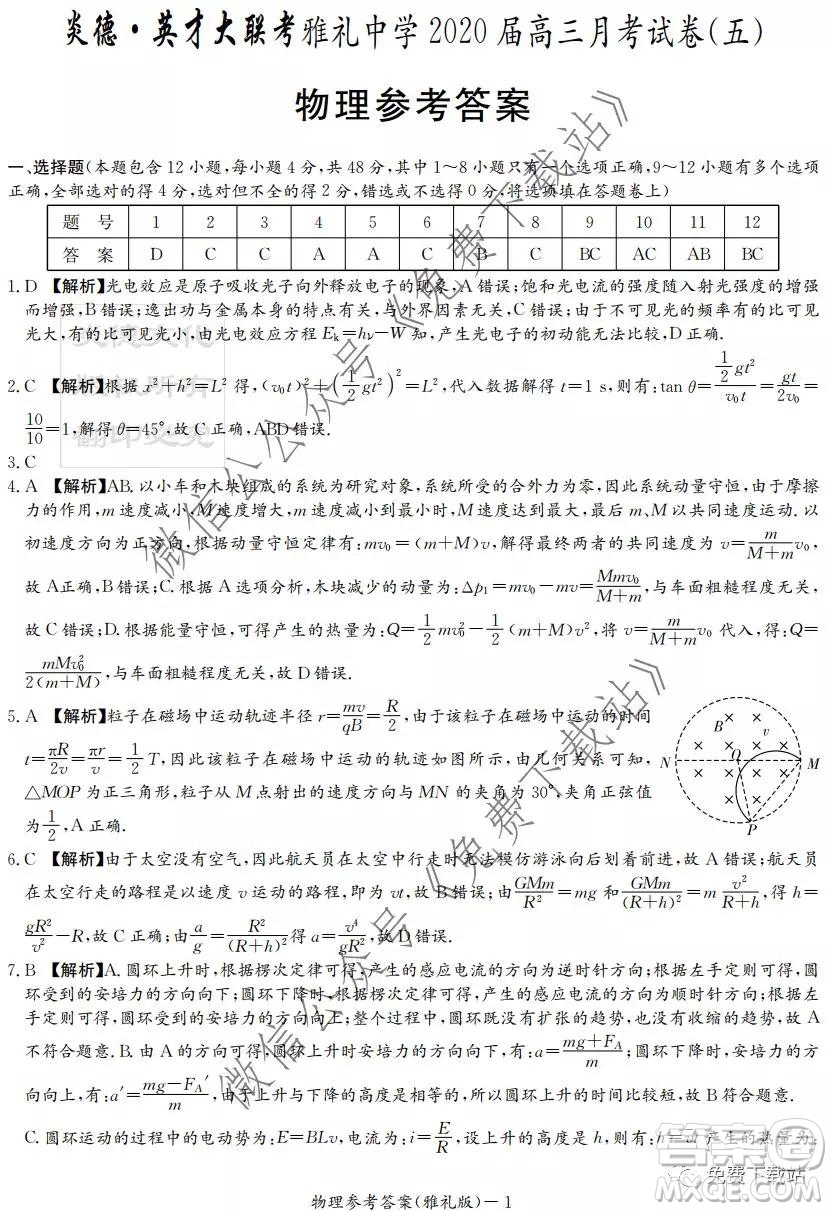 炎德·英才大联考雅礼中学2020届高三月考试卷(五)
物理参考答案
一、选择题(本题包含12小题,每小题4分,共48分,其中1～8小题只有一个选项正确,9～12小题有多个选项
正确,全部选对的得4分,选对但不全的得2分,错选或不选得0分,将选项填在答题卷上)
题 号 1 2 3 4 5 6 7 8 9 10 11 12
答 案 D C C A A C B C BC AC AB BC
1. D 【解析】光电效应是原子吸收光子向外释放电子的现象,A错误;饱和光电流的强度随入射光强度的增强
而增强,B错误;逸出功与金属本身的特点有关,与外界因素无关,C错误;由于不可见光的频率有的比可见
光大,有的比可见光小,由光电效应方程Eₖ=hν-W知,产生光电子的初动能无法比较,D正确.
2. C 【解析】根据x²+h²=L²得,(v₀t)²+(1/2 gt²)²=L²,代入数据解得t=1 s,则有:tan θ=(1/2 gt²)/(v₀t)=gt/2v₀=
10/10=1,解得θ=45°,故C正确,ABD错误.
3. C
4. A 【解析】AB.以小车和木块组成的系统为研究对象,系统所受的合外力为零,因此系统动量守恒,由于摩擦
力的作用,m速度减小,M速度增大,m速度减小到最小时,M速度达到最大,最后m、M以共同速度运动.以
初速度方向为正方向,根据动量守恒定律有:mv₀=(m+M)v,解得最终两者的共同速度为v=m/(M+m) v₀,
故A正确,B错误;C.根据A选项分析,木块减少的动量为:Δp₁=mv₀-mv=Mmv₀/(M+m),与车面粗糙程度无关,
故C错误;D.根据能量守恒,可得产生的热量为:Q=1/2 mv₀²-1/2 (m+M)v²,将v=m/(M+m) v₀代入,得:Q=
mMv₀²/2(m+M),与车面粗糙程度无关,故D错误.
5. A 【解析】粒子在磁场中运动轨迹半径r=mv/qB=R/2,由于该粒子在磁场中运动的时间
t=πR/2v=πr/v=1/2 T,因此该粒子在磁场中运动的轨迹如图所示,由几何关系可知,
△MOP为正三角形,粒子从M点射出的速度方向与MN的夹角为30°,夹角正弦值
为1/2,A正确.
B v
N O M
P
6. C 【解析】由于太空没有空气,因此航天员在太空中行走时无法模仿游泳向后划着前进,故A错误;航天员
在太空行走的路程是以速度v运动的路程,即为vt,故B错误;由GMm/R²=mg和GMm/(R+h)²=m v²/(R+h),得h=
gR²/v²-R,故C正确;由a/g=R²/(R+h)²得a=v⁴/gR²,故D错误.
7. B 【解析】A.圆环上升时,根据楞次定律可得,产生的感应电流的方向为逆时针方向;根据左手定则可得,
圆环受到的安培力的方向向下;圆环下降时,根据楞次定律可得,产生的感应电流的方向为顺时针方向;根据左
手定则可得,圆环受到的安培力的方向向上;整个过程中,圆环既没有扩张的趋势,也没有收缩的趋势,故A
不符合题意.B.由A的方向可得,圆环上升时安培力的方向向下,有:a=(mg+F_A)/m;圆环下降时,安培力的方
向向上,有:a′=(mg-F_A′)/m,由于上升与下降的高度是相等的,所以圆环上升的时间比较短,故B符合题意.
C.圆环运动的过程中的电动势为:E=BLv,电流为:i=E/R,设上升的高度是h,则有:
物理参考答案(雅礼版)-1
微信公众号《免费下载站》
微信公众号《免费下载站》
炎德文化
版权所有
翻印必究
答案圈
MXQE.COM
免费下载站